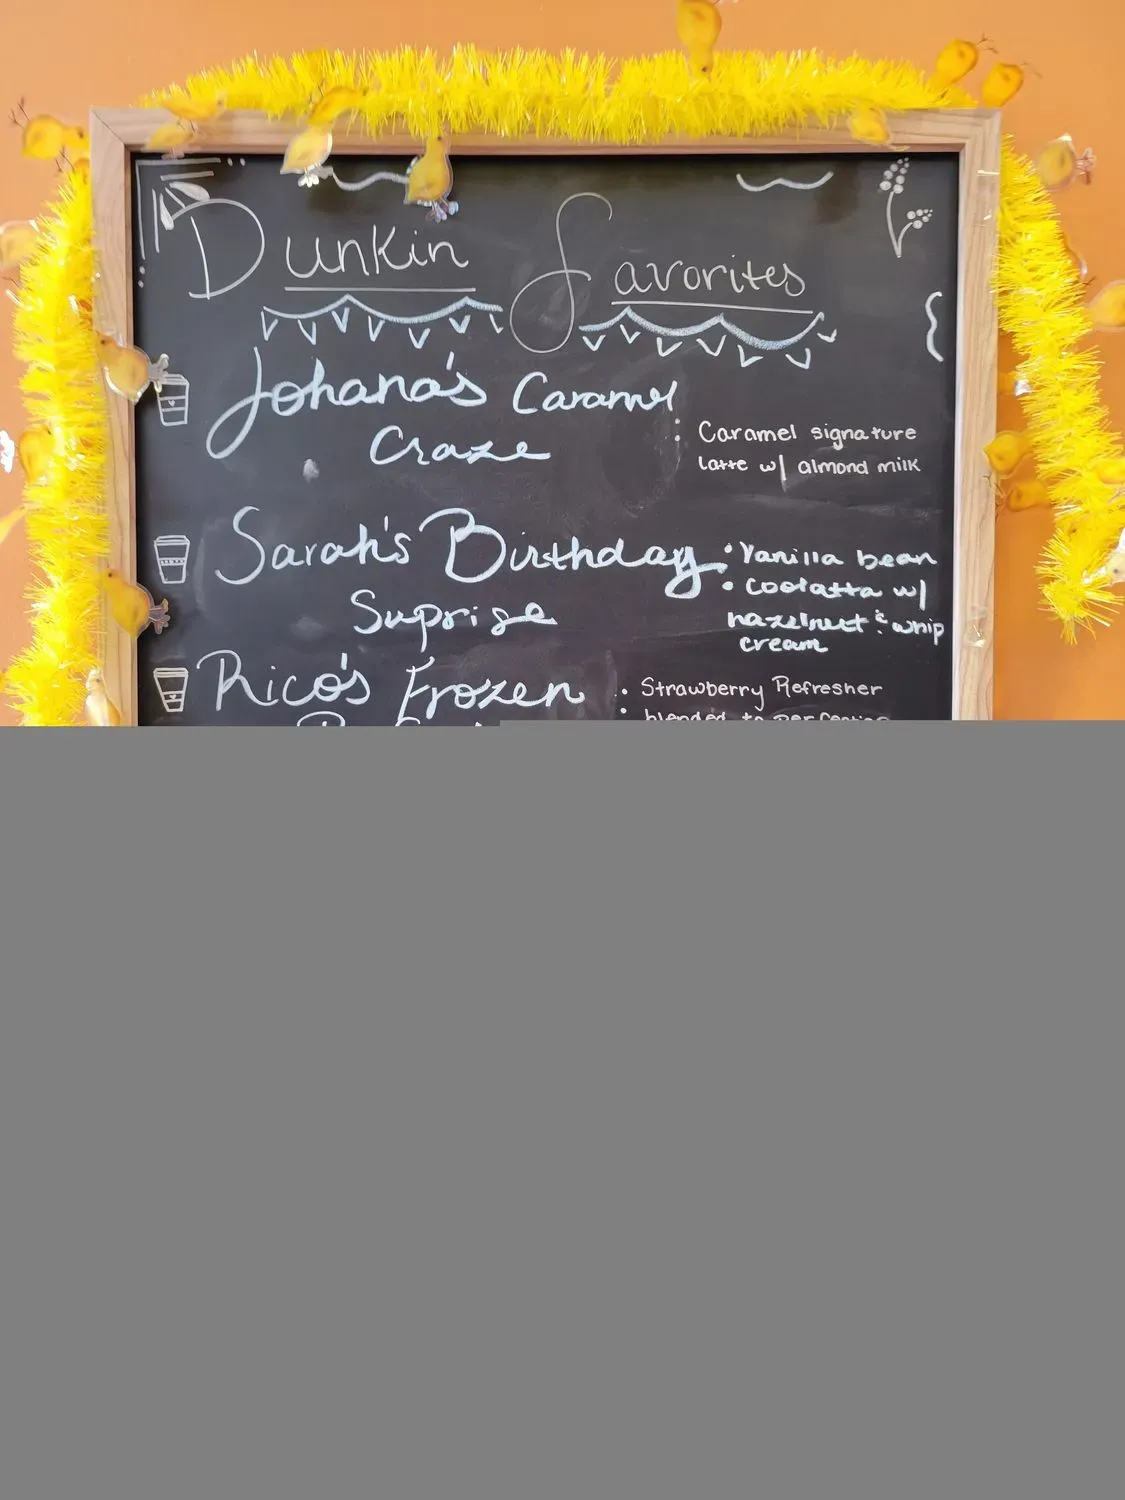 Dunkin Favorites
Johana's Caramel
Craze
: Caramel signature
latte w/ almond milk
Sarah's Birthday
Suprise
• Vanilla bean
• Coolatta w/
hazelnut & whip
cream
Rico's Frozen
• Strawberry Refresher
• blended to perfection